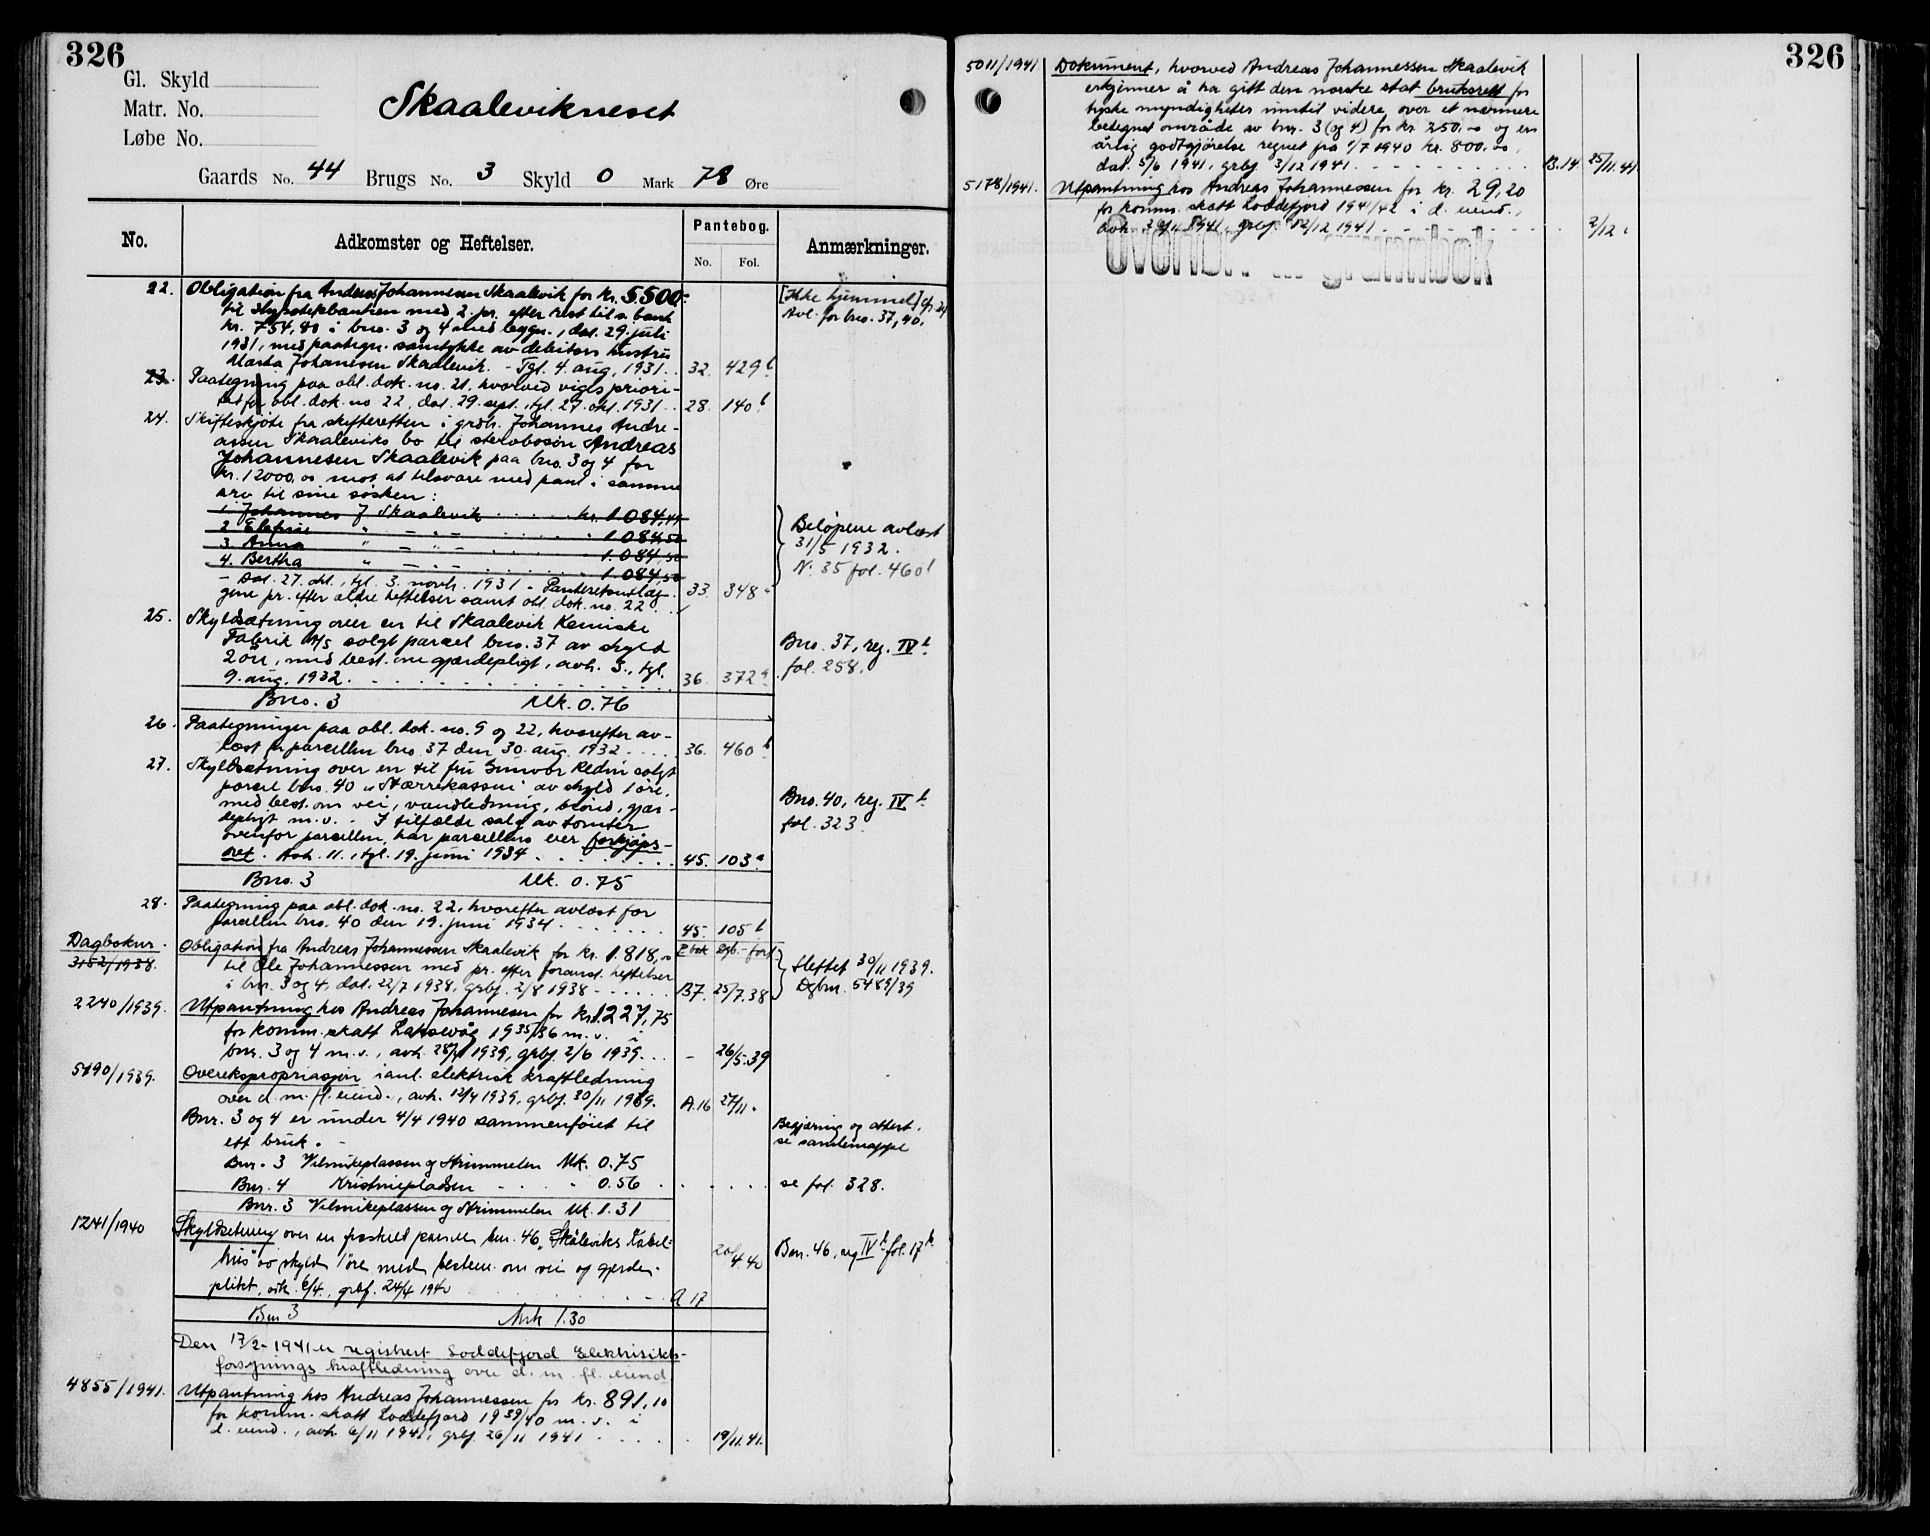 326
Gl. Skyld
Matr. No.
Løbe No.
Skaalevikneset
Gaards No. 44 Brugs No. 3 Skyld 0 Mark 78 Øre
No. Adkomster og Heftelser. Pantebog. Anmærkninger.
No. Fol.
22. Obligation fra Andreas Johannesen Skaalevik for kr. 5.500,- [Ikke hjemmel] cfr 24
til Hypotekbanken med 2. pr. efter rest til s. bank Avl. for bno. 37, 40.
kr. 754,80 i bno. 3 og 4 med bygn., dat. 29. juli
1931, med paategn. samtykke av debitors hustru
Marta Johanesen Skaalevik. - Tgl. 4. aug. 1931. 32. 429 b
23. Paategning paa obl. dok. no. 21, hvorved viges priori-
tet for obl. dok. no 22, dat. 29. sept., tgl. 27. okt. 1931. 28. 140 b
24. Skifteskjøte fra skifteretten i grdbr. Johannes Andre-
assen Skaaleviks bo til stervbosøn Andreas
Johannesen Skaalevik paa bno. 3 og 4 for
kr. 12000,00 mot at tilsvare med pant i samme
arv til sine søsken:
1. Johannes J Skaalevik kr. 1.084,49
2. " - " - 1.084,50 Beløpene avlæst
3. Anna " - " - 1.084,50 31/5 1932.
4. Bertha " - " - 1.084,50 N: 35 fol. 460
- Dat. 27. okt., tgl. 3. novb. 1931 - 33. 348
pr. efter ældre heftelser samt obl. dok. no. 22.
25. Skyldsætning over en til Skaalevik Kemiske
Fabrik A/S solgt parcel bno. 37 av skyld Bno. 37, reg. IV b
2 øre, med best. om gjærdepligt, avh. 3., tgl. fol. 258.
9. aug. 1932. 36. 372 a
Bno. 3 Mk. 0.76
26. Paategninger paa obl. dok. no. 9 og 22, hvorefter av-
læst for parcellen bno. 37 den 30. aug. 1932 36. 460 b
27. Skyldsætning over en til fru Gunvor Redin solgt
parcel bno. 40 "Stærrekassen" av skyld 1 øre, Bno. 40, reg. IV b
med best. om vei, vandledning, brønd, gjær- fol. 323.
depligt m.v. - I tilfælde salg av tomter
ovenfor parcellen har parcellens eier forkjøps-
ret. Avh. 11., tgl. 19. juni 1934 45. 103 a
Bno. 3 Mk. 0.75
28. Paategning paa obl. dok. no. 22, hvorefter avlæst for
parcellen bno. 40 den 19. juni 1934 45. 105 b
Dagboknr. Obligation fra Andreas Johannessen Skaalevik for kr. 1.818,00 P.bok Dgb.-ført
3152/1938. til Ole Johannessen med pr. efter foranst. heftelser Slettet 30/11 1939.
i bnr. 3 og 4, dat. 22/7 1938, grbf. 2/8 1938 B7. 25/7.38 Dgbnr. 5489/39
2240/1939. Utpantning hos Andreas Johannesen for kr. 1.227,75
for komm. skatt Laksevåg 1935/36 m.v. i
bnr. 3 og 4 m.v., avh. 1939, grbf. 2/6 1939. - 26/5.39
5190/1939. Overekspropriasjon i anl. elektrisk kraftledning
over d. m. fl. eiend., avh. 12/4 1939, grbf. 30/11 1939. A.16 27/11.
Bnr. 3 og 4 er under 4/4 1940 sammenføiet til Begjæring og attest.
ett bruk. - se samlemappe
Bnr. 3 Vilmikeplassen og Strimmelen Mk. 0.75
Bnr. 4 Kristniepladsen " 0.56 se fol. 328.
Bnr. 3 Vilmikeplassen og Strimmelen Mk. 1.31
1241/1940 Skyldsetning over en fraskilt parsell bnr. 46 "Skåleviks Kabel- 20/4 40 Bnr. 46, reg IV b fol. 17 b
hus" av skyld 1 øre med bestem. om vei og gjerde-
plikt, avh. 6/4, grbf. 24/4 1940 A 17
Bnr 3 Mrk 1.30
Den 17/2-1941 er registrert Loddefjord Elektrisitets-
forsynings kraftledning over d. m. fl. eiend
4855/1941. Utpantning hos Andreas Johannessen for kr. 891,10
for komm. skatt Loddefjord 1939/40 m.v. i
d. eiend., avh. 6/11 1941, grbf. 26/11 1941 19/11.41.
326
5011/1941 Dokument, hvorved Andreas Johannessen Skaalevik
erkjenner å ha gitt den norske stat bruksrett for
tyske myndigheter inntil videre over et nærmere
betegnet område av bnr. 3 (og 4) for kr. 250,00 og en
årlig godtgjørelse regnet fra 1/7 1940 kr. 800,00,
dat. 5/6 1941, grbf. 3/12 1941. B.14. 25/11.41
5178/1941. Utpantning hos Andreas Johannessen for kr. 29,20
for komm. skatt Loddefjord 1941/42 i d. eiend.,
avh. 1941, grbf. 12/12 1941 2/12.
Overført til grunnbok